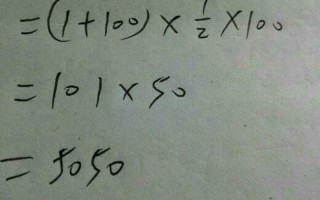 =(1+100)×1/2×100
=101×50
=5050